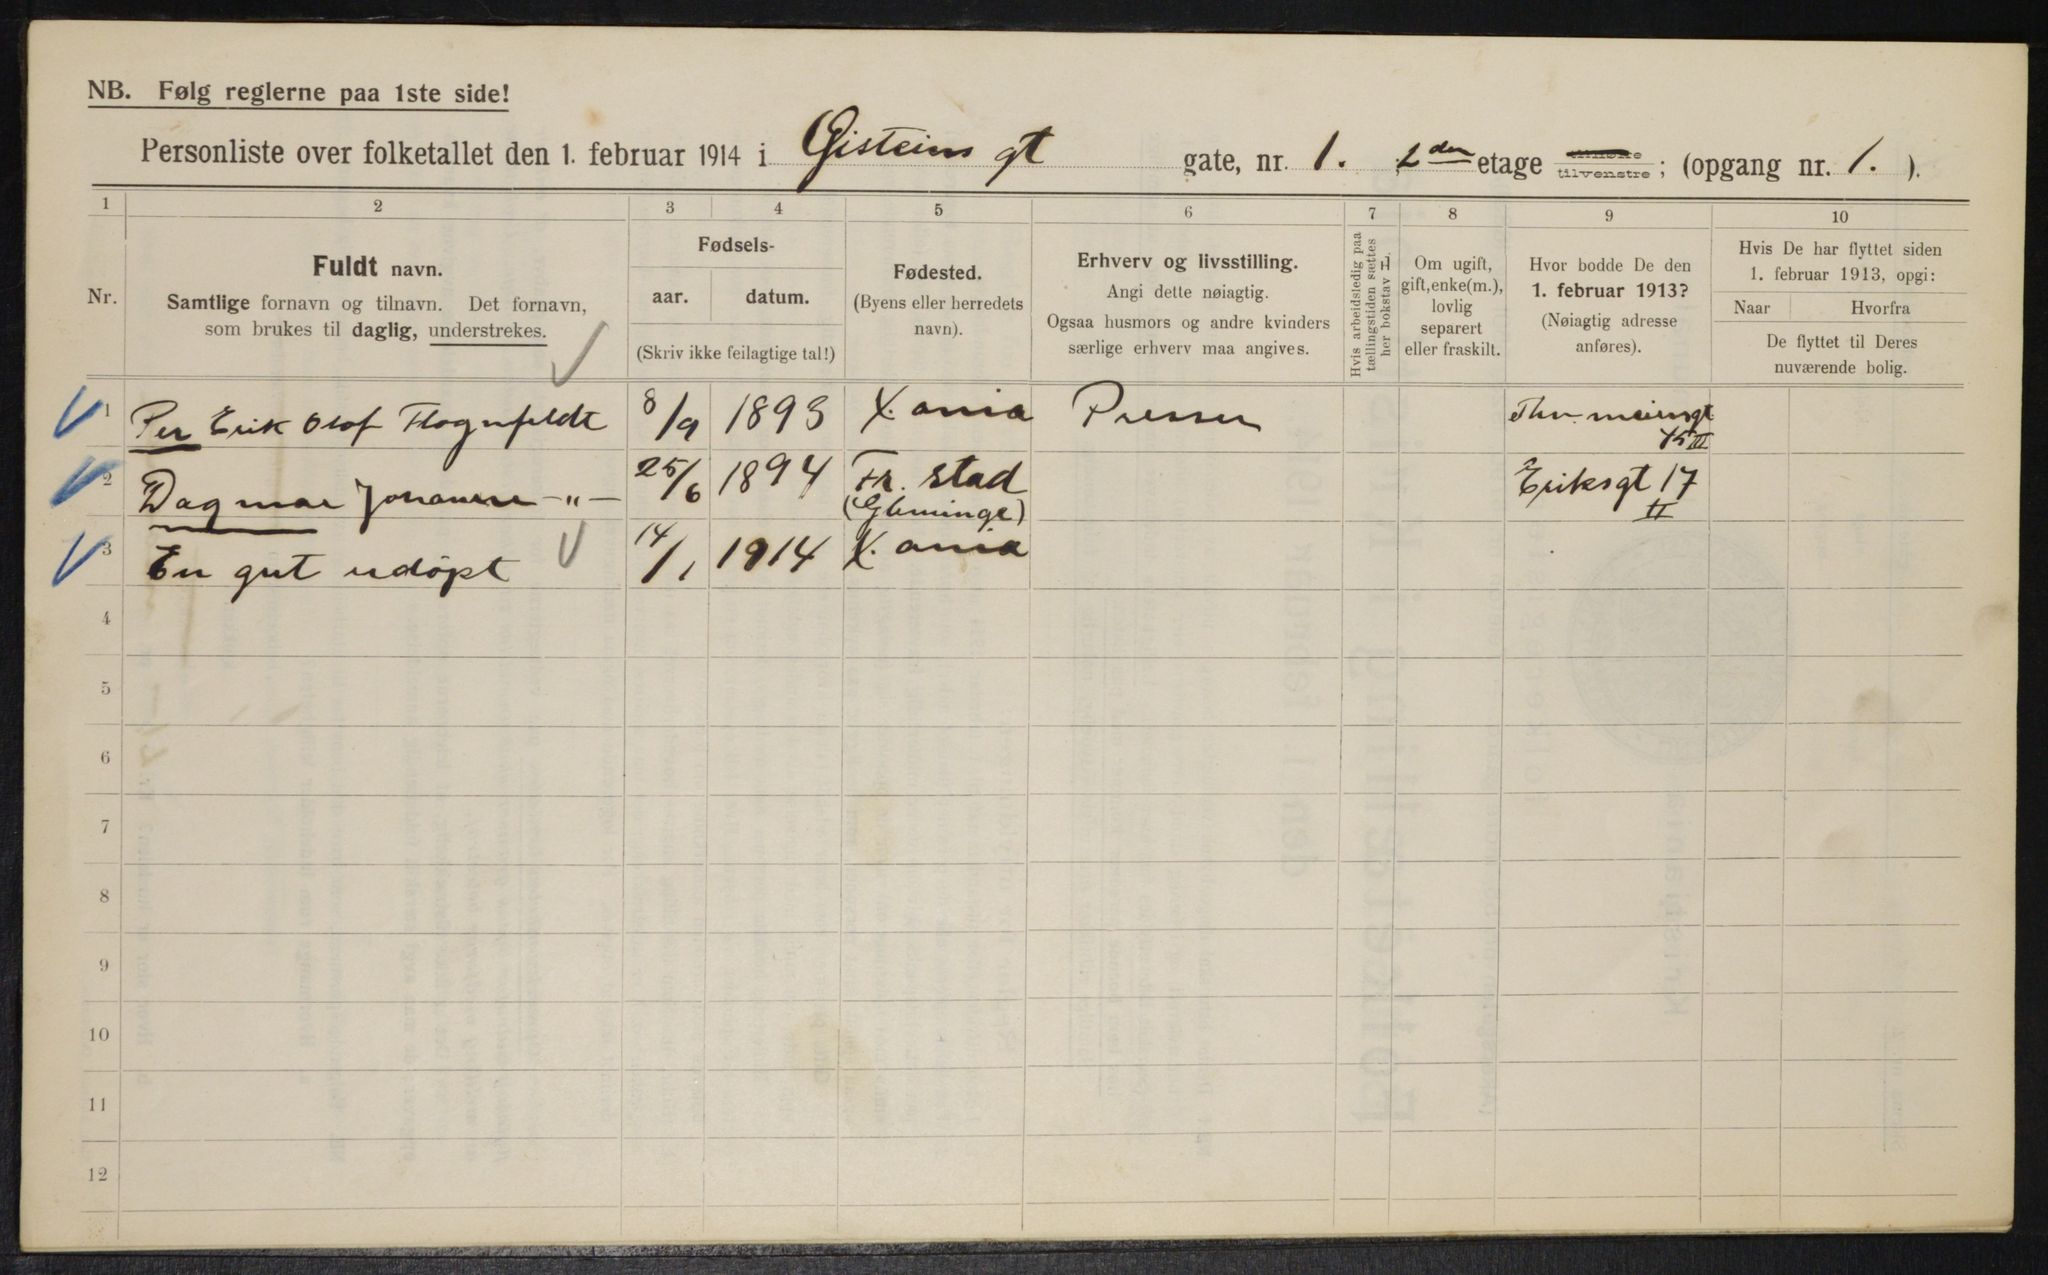 NB. Følg reglerne paa 1ste side!
Personliste over folketallet den 1. februar 1914 i Gisteins gt gate, nr. 1. 2den etage tilhøire tilvenstre ; (opgang nr. 1. ).
1 2 3 4 5 6 7 8 9 10
Nr.
Fuldt navn.
Samtlige fornavn og tilnavn. Det fornavn,
som brukes til daglig, understrekes.
Fødsels-
aar. datum.
(Skriv ikke feilagtige tal!)
Fødested.
(Byens eller herredets
navn).
Erhverv og livsstilling.
Angi dette nøiagtig.
Ogsaa husmors og andre kvinders
særlige erhverv maa angives.
Hvis arbeidsledig paa
tællingstiden sættes
her bokstav L
Om ugift,
gift, enke(m.),
lovlig
separert
eller fraskilt.
Hvor bodde De den
1. februar 1913?
(Nøiagtig adresse
anføres).
Hvis De har flyttet siden
1. februar 1913, opgi:
Naar Hvorfra
De flyttet til Deres
nuværende bolig.
1 Per Erik Olof Flognfeldt 8/9 1893 X.ania Presser Thv. meiersgt
45 III
2 Dagmar Johanne -"- 25/6 1894 Fr. stad Eriksgt 17
(Glemminge) II
3 En gut udöpt 14/1 1914 X.ania
4
5
6
7
8
9
10
11
12